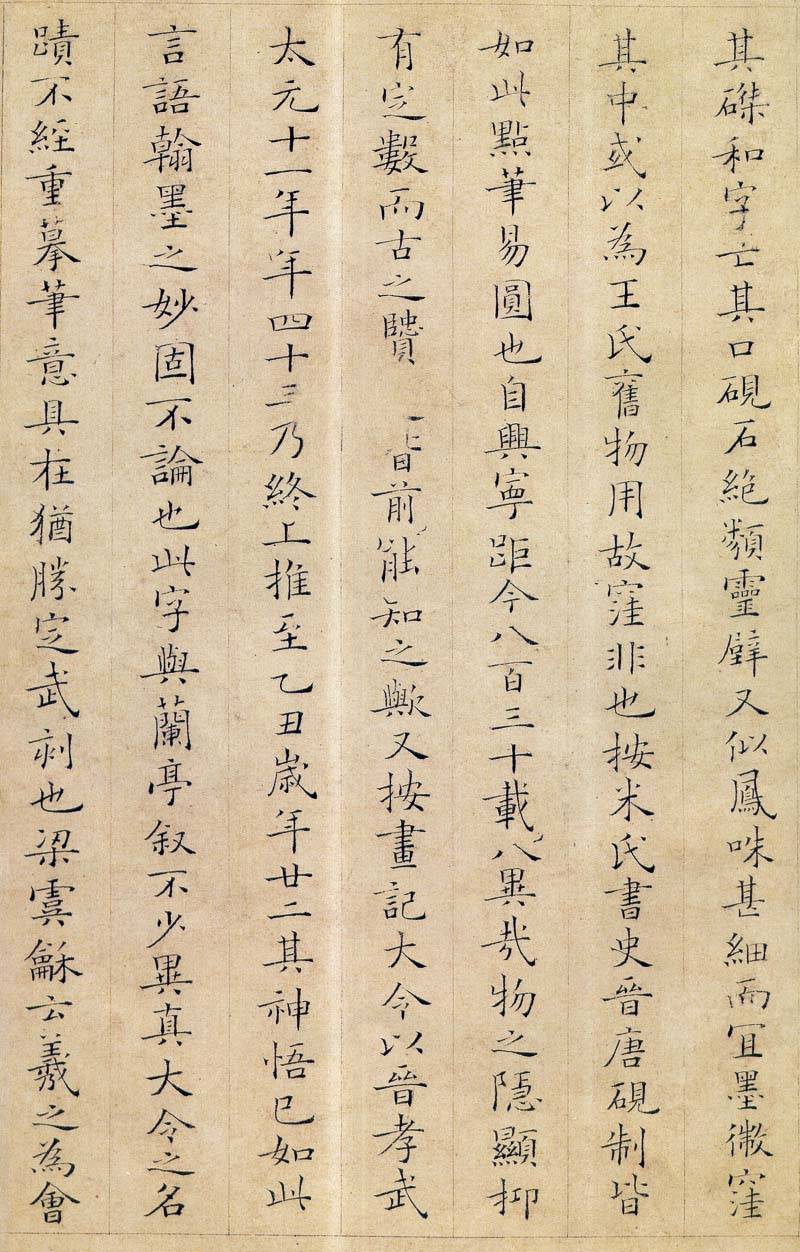 其磔和字亡其口硯石絶類靈璧又似鳳咮甚細而宜墨微窪
其中或以為王氏舊物用故窪非也按米氏書史晉唐硯制皆
如此點筆易圓也自興寧距今八百三十載八異哉物之隱顯抑
有定數而古之贒 前能知之歟又按畫記大令以晉孝武
太元十一年年四十三乃終上推至乙丑歲年廿二其神悟已如此
言語翰墨之妙固不論也此字與蘭亭叙不少異真大令之名
蹟不經重摹筆意具在猶勝定武刻也梁虞龢云羲之為會